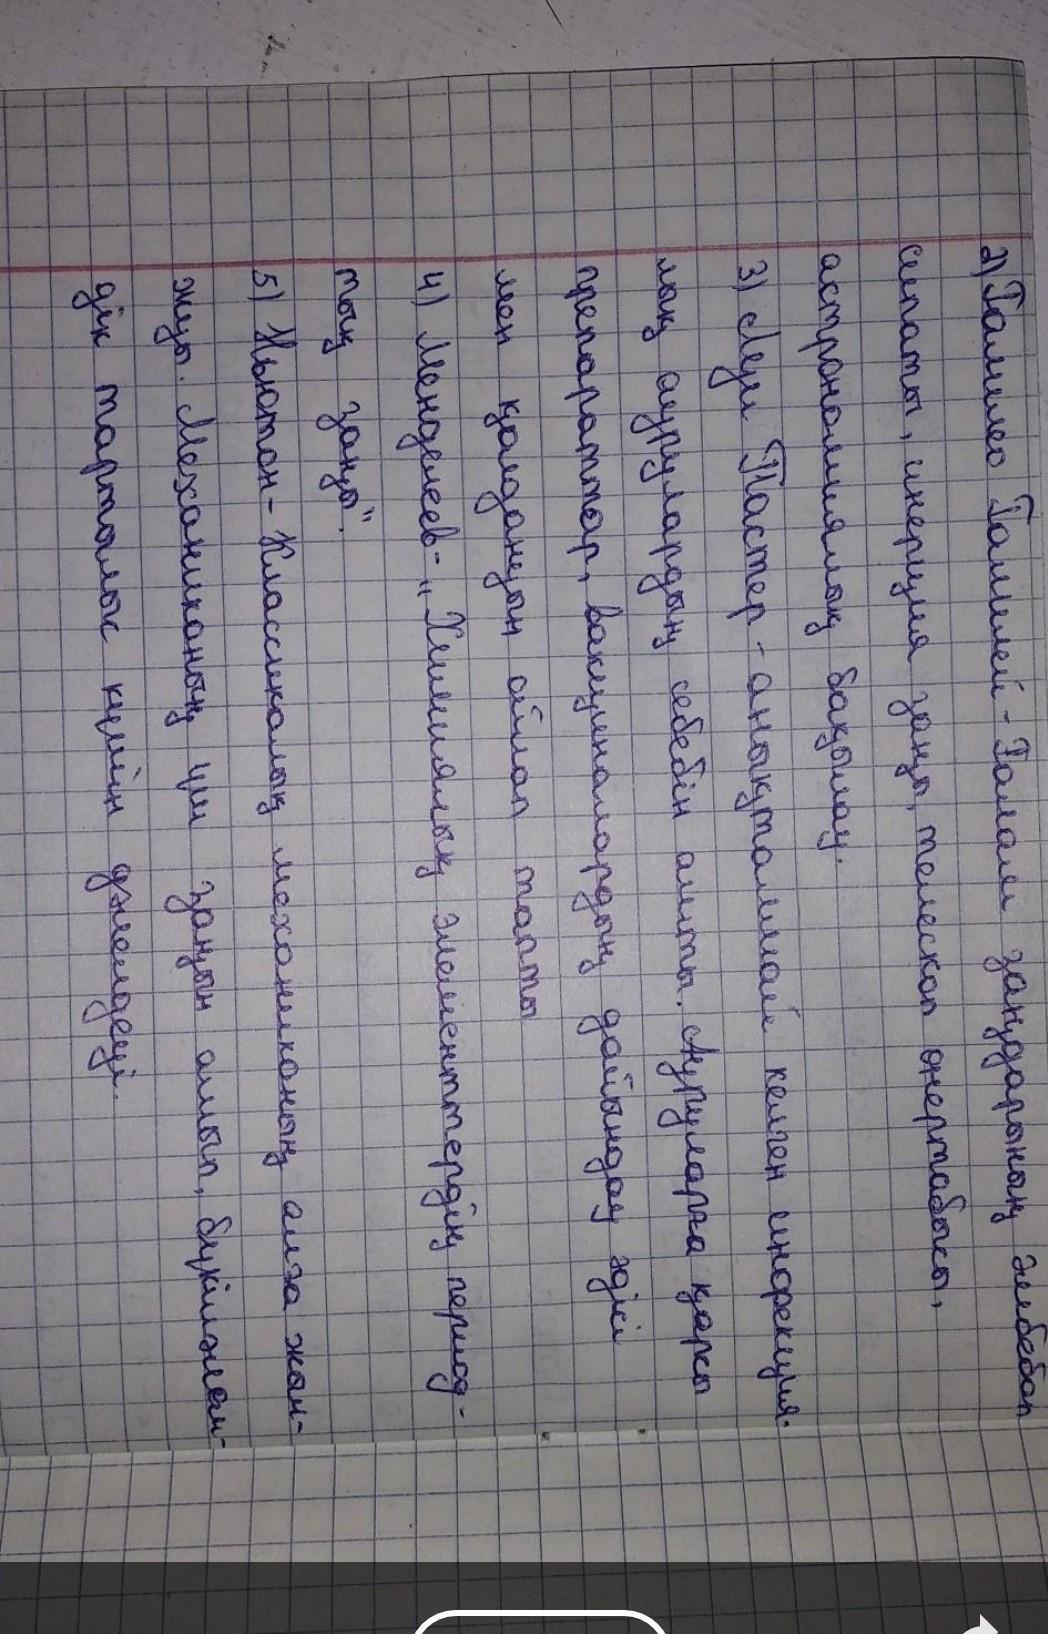 2) Галилео Галилей - Ғалам заңдарының әмбебап
сипаты, инерция заңы, телескоп өнертабысы,
астрономиялық бақылау.
3) Луи Пастер - анықталмай келген инфекция-
лық аурулардың себебін ашты. Ауруларға қарсы
препараттар, вакциналардың дайындау әдісі
мен қолдануын ойлап тапты
4) Менделеев - „Химиялық элементтердің период-
тық заңы".
5) Ньютон - Классикалық механиканың алға жы-
жуы. Механиканың үш заңын ашып, бүкіләлем-
дік тартылыс күшін дәлелдеуі.